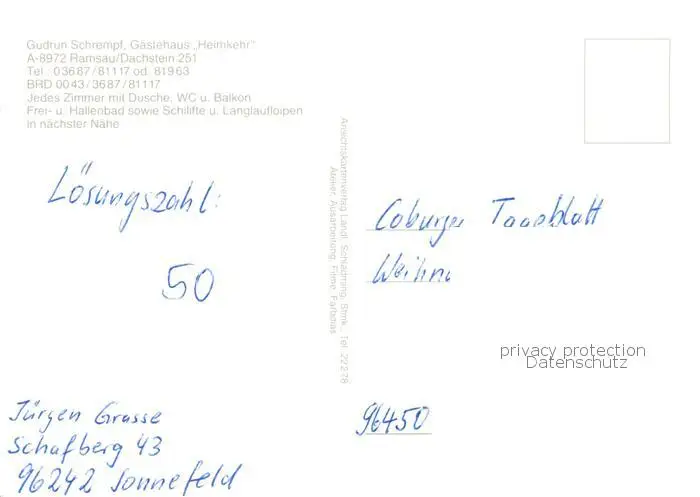 Gudrun Schrempf, Gästehaus „Heimkehr"
A-8972 Ramsau/Dachstein 251
Tel.: 03687/81117 od. 81963
BRD 0043/3687/81117
Jedes Zimmer mit Dusche, WC u. Balkon
Frei- u. Hallenbad sowie Schilifte u. Langlaufloipen
in nächster Nähe
Lösungszahl:
50
Jürgen Grosse
Schafberg 43
96242 Sonnefeld
Ansichtskartenverlag Landl, Schladming, Stmk., Tel. 22278
Atelier, Ausarbeitung, Filme, Farbdias
Coburger Tageblatt
96450
privacy protection
Datenschutz